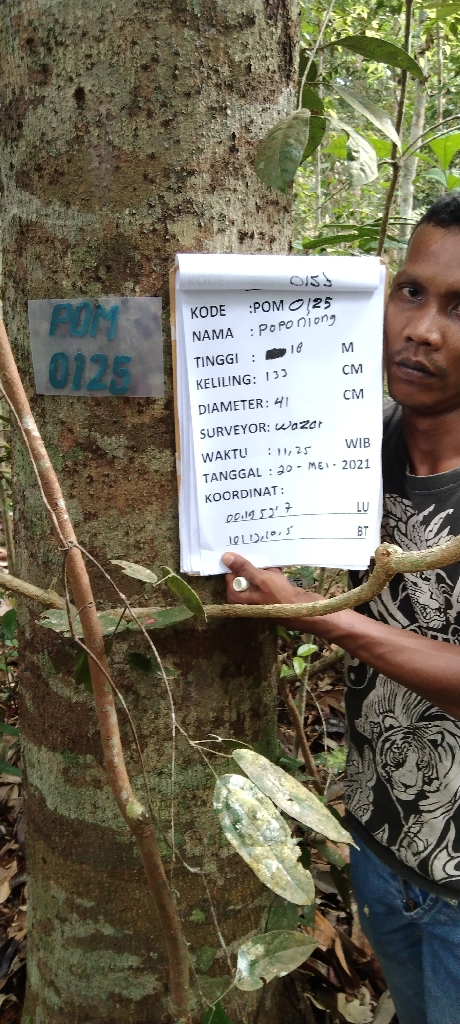 POM
0125
KODE 0153
KODE :POM 0125
NAMA : POPONIONG
TINGGI : 18 M
KELILING: 133 CM
DIAMETER: 41 CM
SURVEYOR: wazar
WAKTU : 11,25 WIB
TANGGAL : 20 - MEI - 2021
KOORDINAT :
00,19 52', 7 LU
101,12,10,5 BT